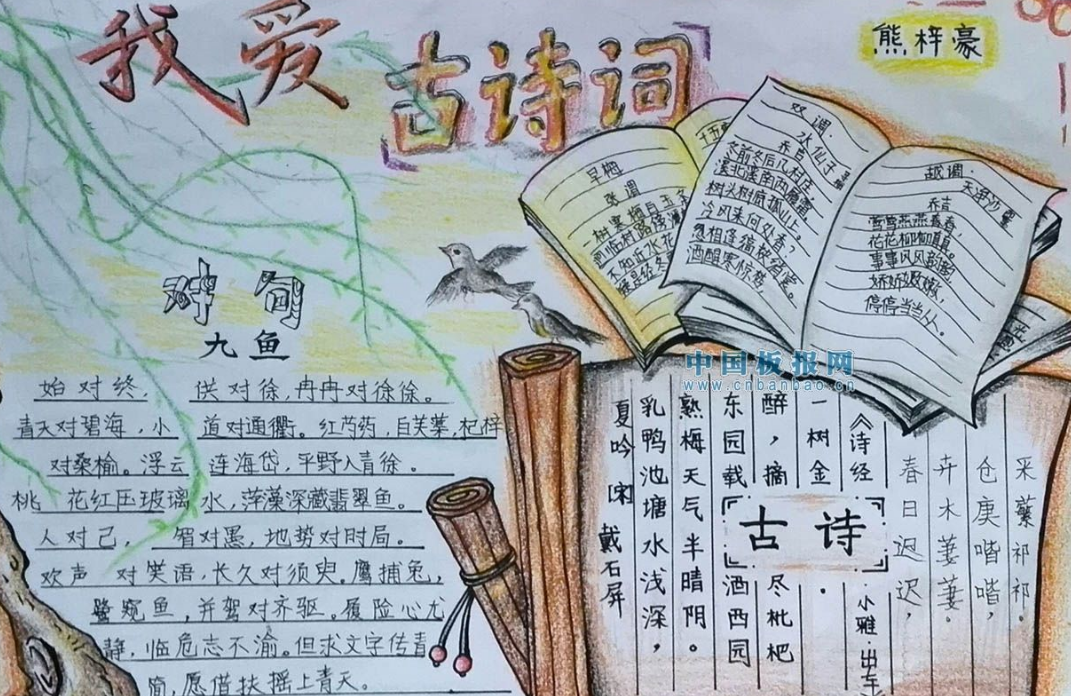 我爱
古诗词
熊梓豪
对句
九鱼
始对终，供对徐，冉冉对徐徐。
青天对碧海，小道对通衢。红芍药，白芙蓉，杞梓
对桑榆。浮云连海岱，平野入青徐。
桃花红压玻璃水，萍藻深藏翡翠鱼。
人对己，眉对愚，地势对时局。
欢声对笑语，长久对须臾。鹰捕兔，
鹭窥鱼，并驾对齐驱。履险心尤
静，临危志不渝。但求文字传青
简，愿借扶摇上青天。
早梅
张谓
一树寒梅白玉条
双调·
水仙子
乔吉
冬前冬后几村庄
溪北溪南两履霜
树头树底孤山上。
冷风来何处香？
忽相逢缟袂绡裳。
酒醒寒惊梦，
越调·
天净沙
乔吉
莺莺燕燕春春，
花花柳柳真真，
事事风风韵韵
娇娇嫩嫩，
停停当当人。
中国板报网
www.cnbanbao.cn
采蘩祁祁。
仓庚喈喈，
卉木萋萋。
春日迟迟，
《诗经
小雅·出车
古诗
一树金
醉，摘尽枇杷
东园载酒西园
熟梅天气半晴阴。
乳鸭池塘水浅深，
夏吟 [宋] 戴石屏